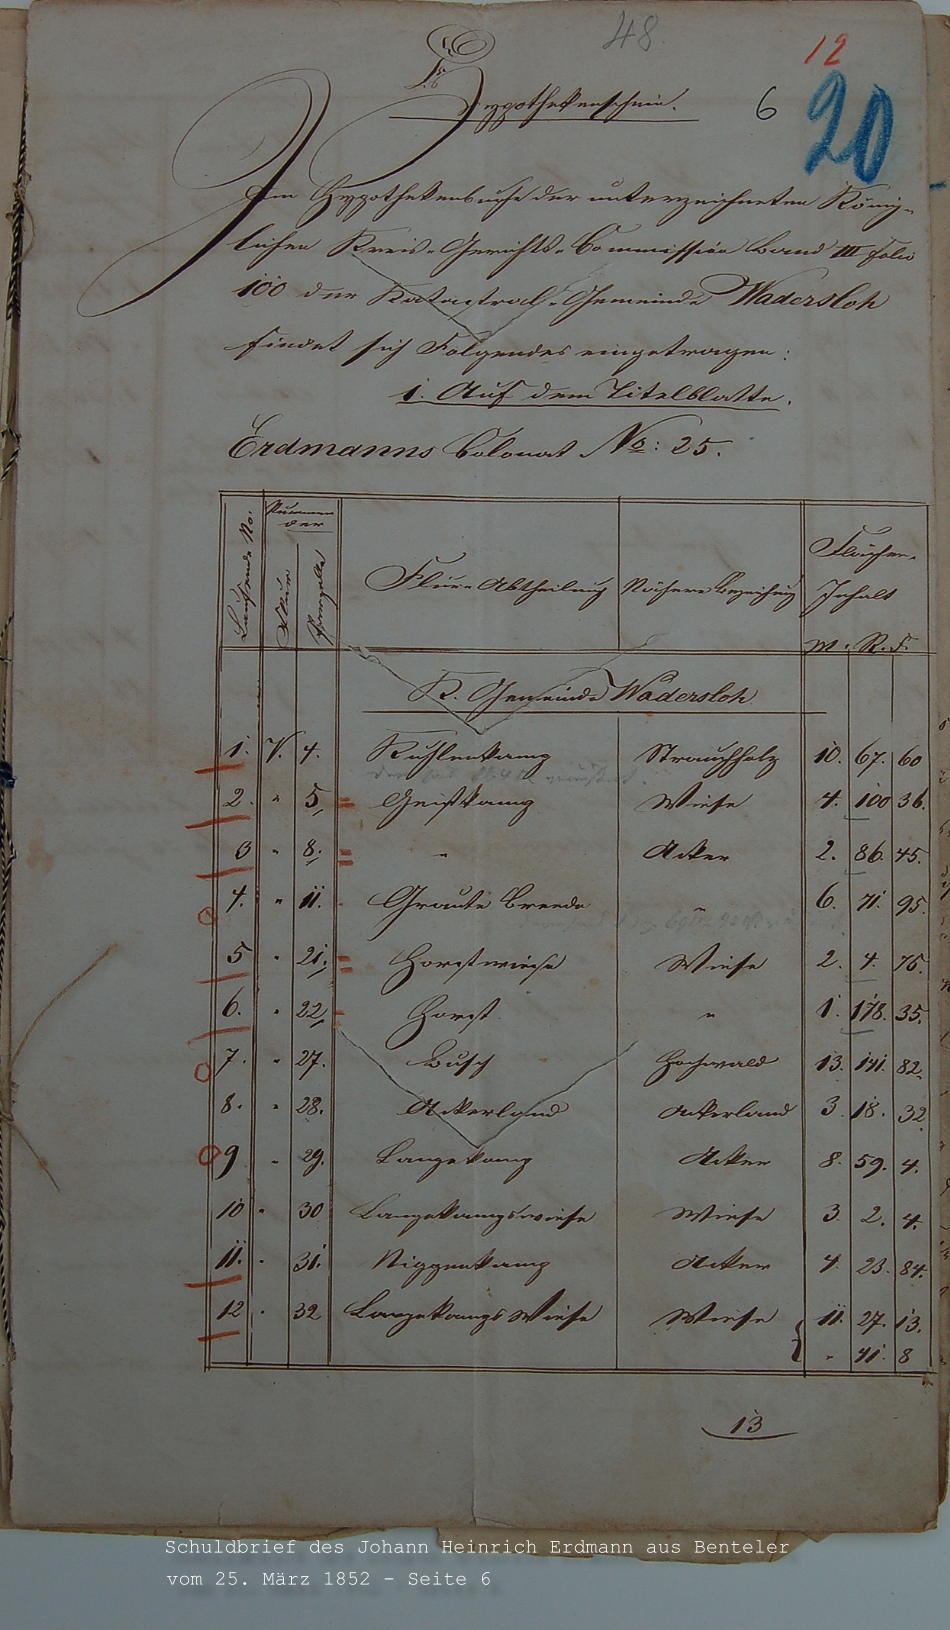 48.
12
Hypothekenschein.
6
20
Im Hypothekenbuche der unterzeichneten König-
lichen Kreis-Gerichts-Commission Band III Folio
100 der Katastral-Gemeinde Wadersloh
findet sich Folgendes eingetragen:
1. Auf dem Titelblatte.
Erdmanns Colonat No: 25.
Laufende No. Nummer der Flur Parzelle Flur-Abtheilung Nähere Bezeichnung Flächen-Inhalt
M. R. F.
K. Gemeinde Wadersloh
1. V. 4. Kuhlenkamp Strauchholz 10. 67. 60
2. " 5. Geistkamp Wiese 4. 100 36.
3 " 8. " Acker 2. 86. 45.
4. " 11. Graute Breede " 6. 71. 95.
5 " 21. Horstwiese Wiese 2. 4. 75.
6. " 22. Horst " 1. 178. 35.
7. " 27. Busch Hochwald 13. 141. 82.
8. " 28. Ackerland Ackerland 3. 18. 32
9 " 29. Langekamp Acker 8. 59. 4.
10 " 30 Langekampswiese Wiese 3. 2. 4.
11. " 31. Niggenkamp Acker 4. 23. 84.
12 " 32 Langekamps Wiese Wiese 11. 27. 13.
" 41. 8
13
Schuldbrief des Johann Heinrich Erdmann aus Benteler
vom 25. März 1852 - Seite 6